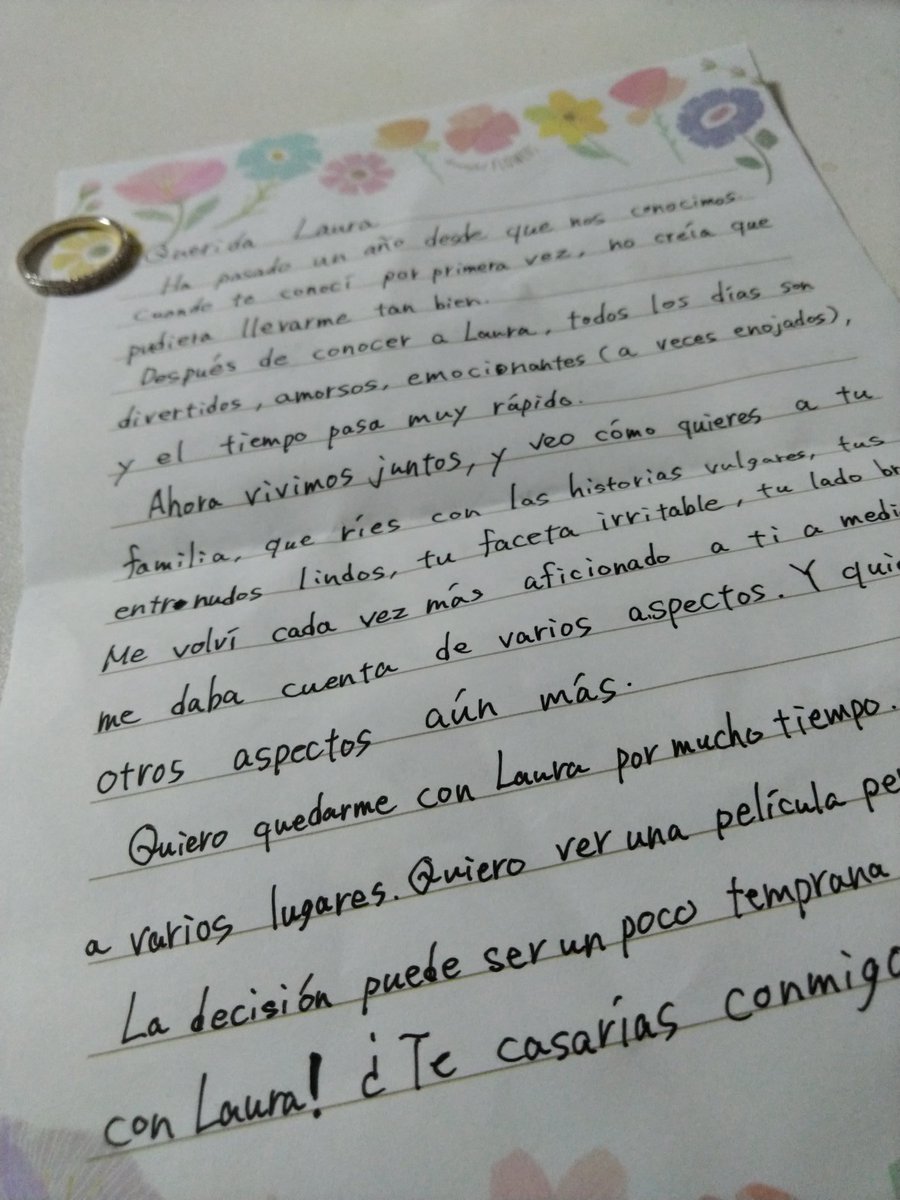 FLOWERS
Querida Laura
Ha pasado un año desde que nos conocimos
Cuando te conocí por primera vez, no creía que
pudiera llevarme tan bien.
Después de conocer a Laura, todos los días son
divertidos, amorsos, emocionantes (a veces enojados),
y el tiempo pasa muy rápido.
Ahora vivimos juntos, y veo cómo quieres a tu
familia, que ríes con las historias vulgares, tus
entronudos lindos, tu faceta irritable, tu lado
Me volví cada vez más aficionado a ti a
me daba cuenta de varios aspectos. Y
otros aspectos aún más.
Quiero quedarme con Laura por mucho tiempo.
a varios lugares. Quiero ver una película
La decisión puede ser un poco temprana
con Laura! ¿Te casarías conmigo